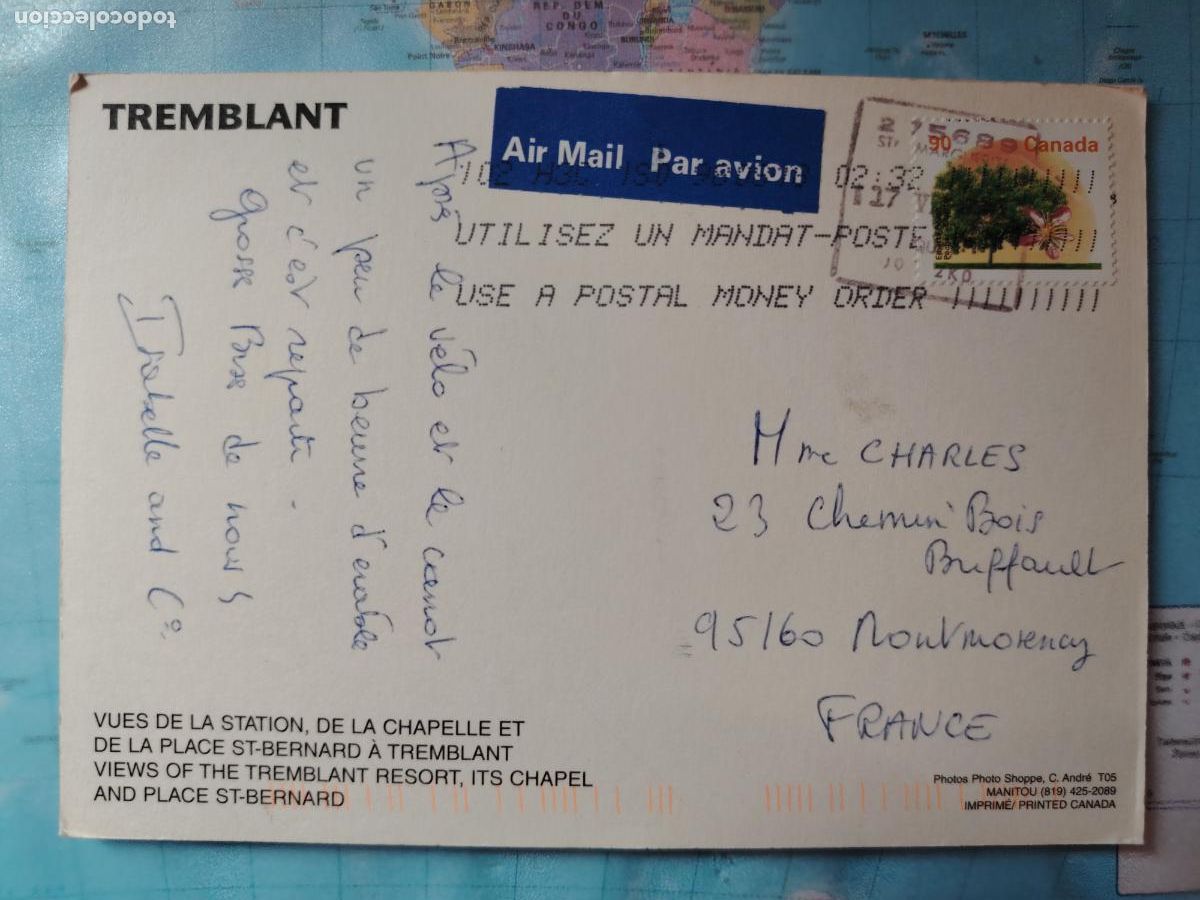 todocoleccion
GABON
REP. DEM
DU
CONGO
KINSHASA
BURUNDI
SEYCHELLES
TREMBLANT
Air Mail Par avion
02:32
UTILISEZ UN MANDAT-POSTE
USE A POSTAL MONEY ORDER
275689
17
90 Canada
Après le vélo et le canot
un peu de beurre d'érable
et c'est reparti -
Grosse Bise de nous 5
Isabelle and Co.
Mme CHARLES
23 Chemin Bois
Buffault
95160 Montmorency
FRANCE
VUES DE LA STATION, DE LA CHAPELLE ET
DE LA PLACE ST-BERNARD À TREMBLANT
VIEWS OF THE TREMBLANT RESORT, ITS CHAPEL
AND PLACE ST-BERNARD
Photos Photo Shoppe, C. André T05
MANITOU (819) 425-2089
IMPRIMÉ/ PRINTED CANADA